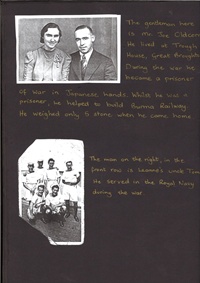 The gentleman here
is Mr. Joe
He lived at
House, Great
During the war he
became a prisoner
of war in Japanese hands. Whilst he was a
prisoner, he helped to build Burma Railway.
He weighed only 5 stone when he came home
The man on the right, in the
front row is Leanne's uncle
He served in the Royal Navy
during the war.